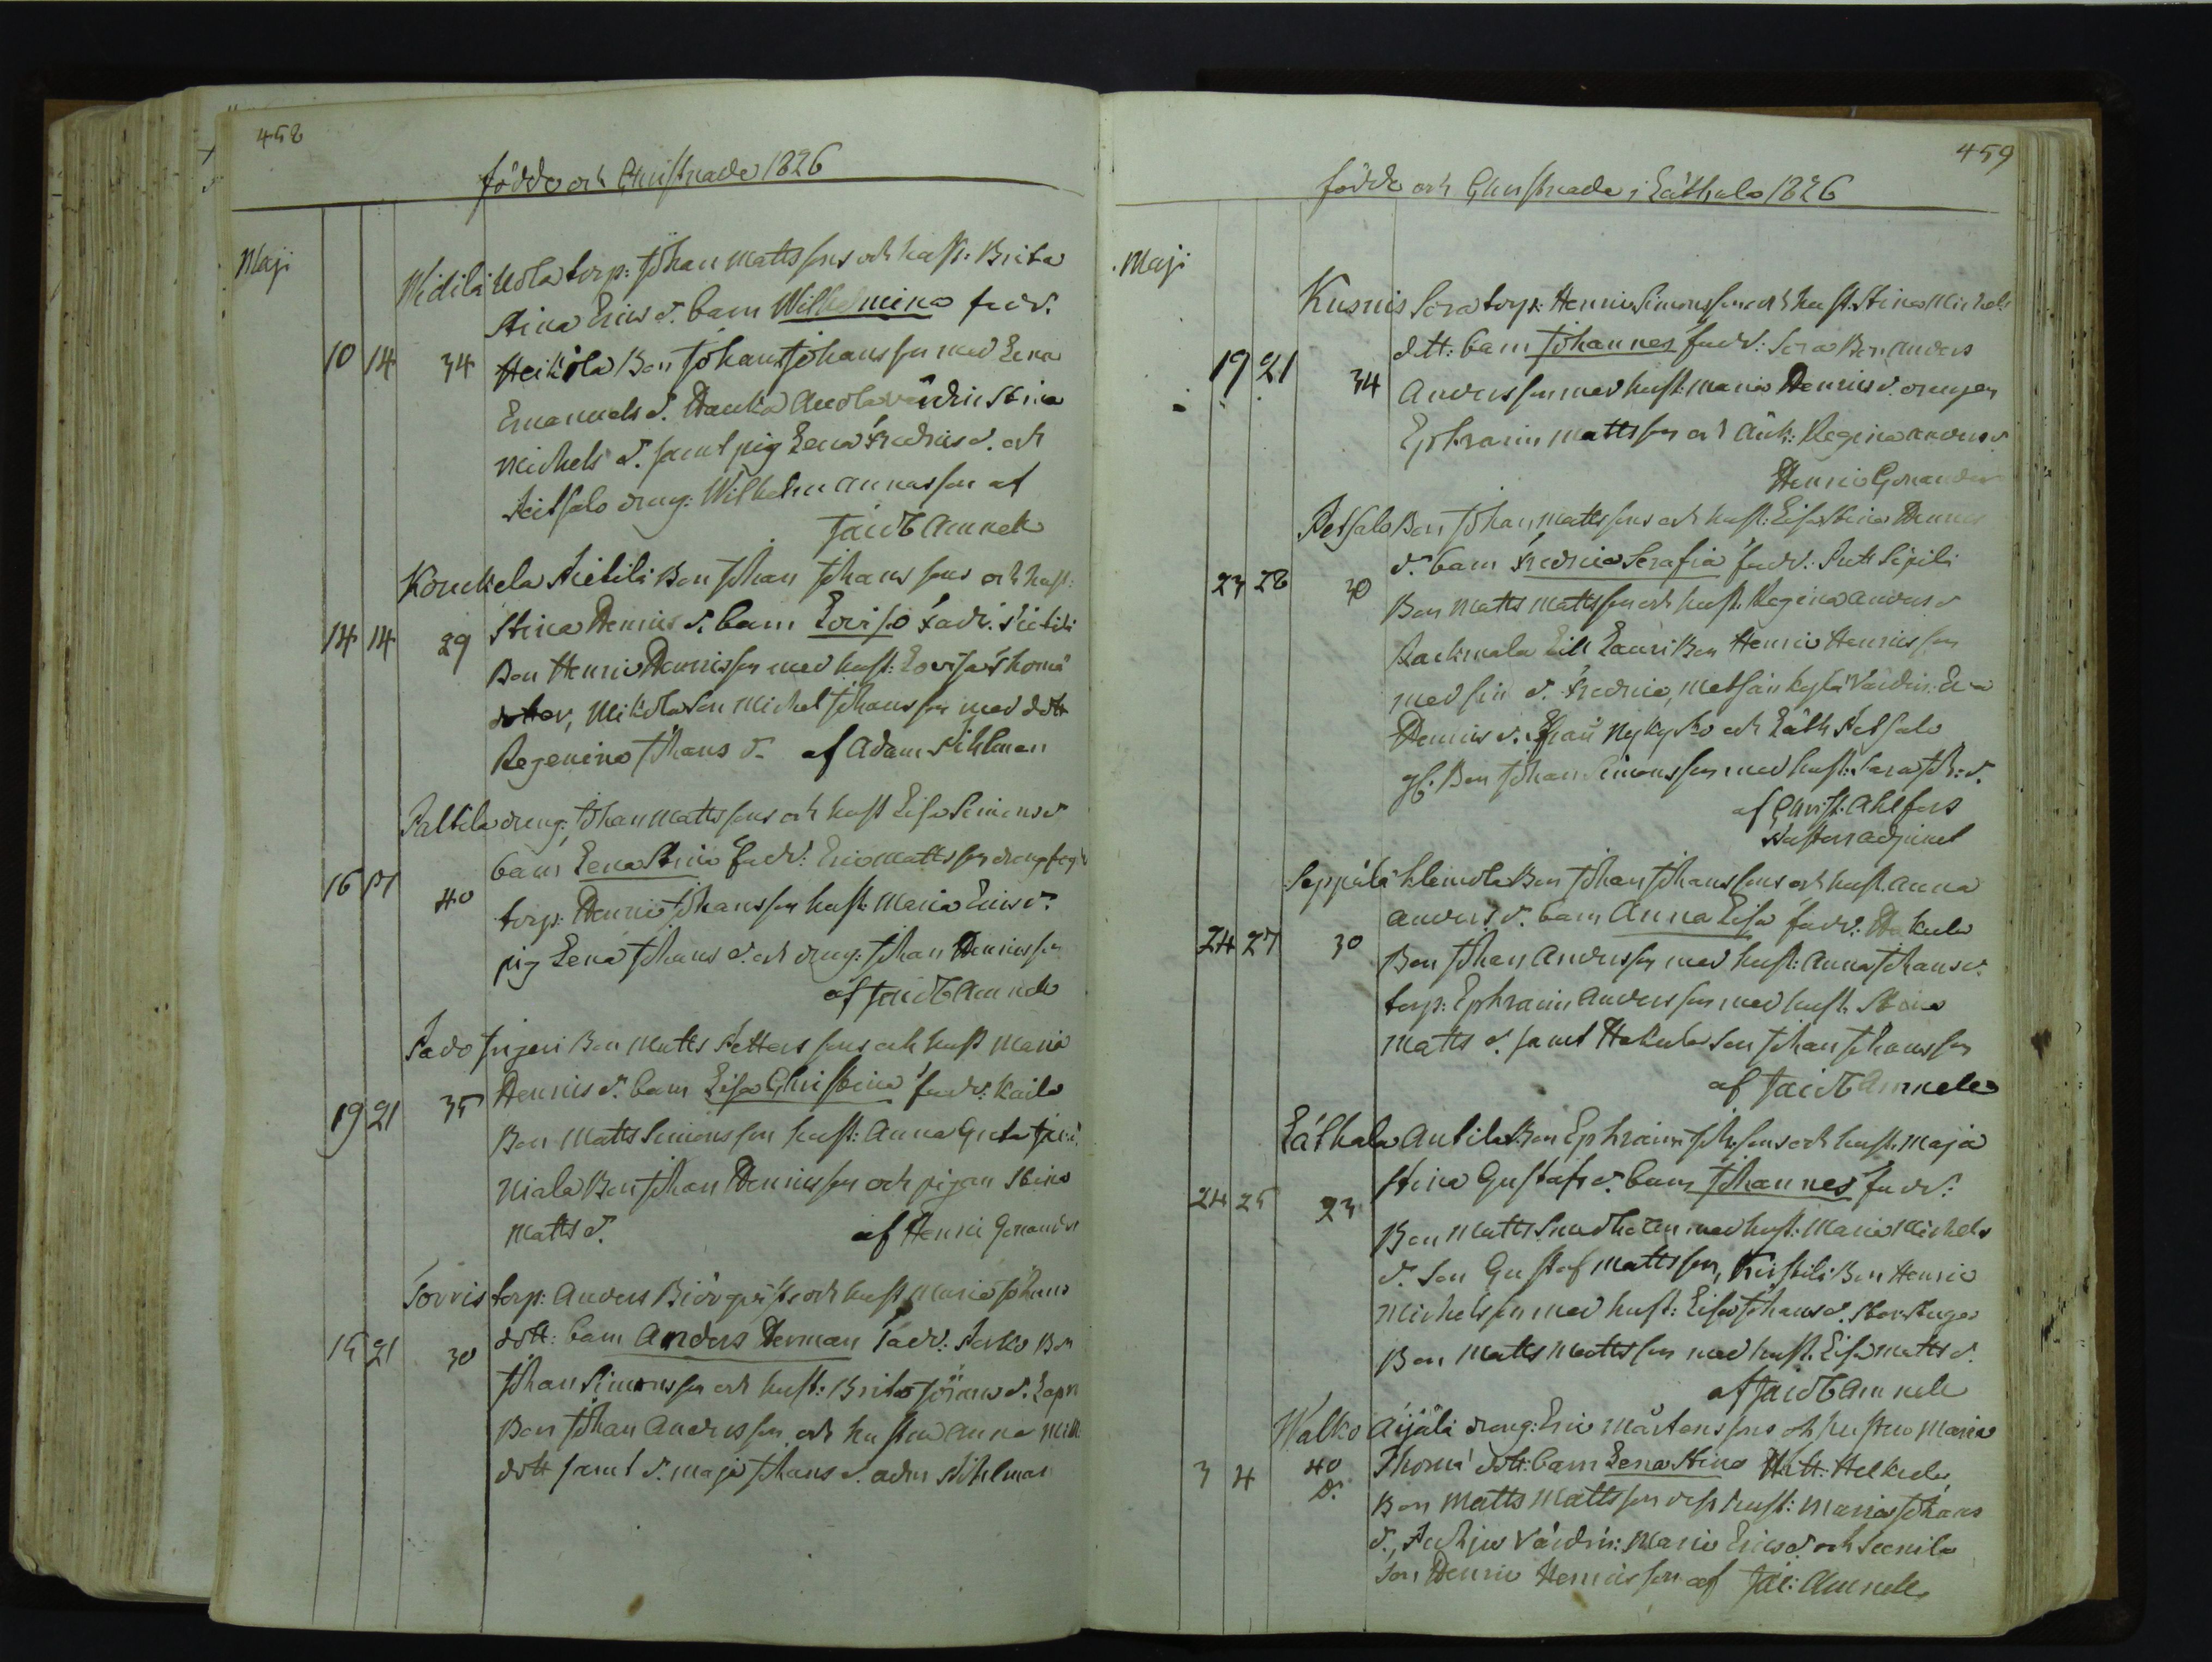 458
födde och Christnade 1826
Maji
Widilä Uola torp: Johan Mattssons och hust. Brita
Stina Erics d. barn Wilhelmina fadd.
10 14 34 Heikola Bon Johan Johansson med Lena
Emanuels d. Hauka Anola värdin Stina
Michels d. samt pig Lena Fredrics d. och
dreng: Wilhelm Annasson af
Jacob Amnele
Konckela Sietilä Bon Johan Johanssons och hust:
14 14 29 Stina Henrics d. barn Lovisa Fadd. Sietilä
Bon Henric Henricsson med hust: Lovisa Thomä
dotter, Mikola Son Michel Johansson med dott
Regenina Johans d. af Adam Sihlman
Paltila dreng: Johan Mattssons och hust Lisa Simons d
barn Lena Stina fadd: Eric Mattsson
16 17 40 torp: Henric Johansson hust: Maria Erics d.
pig Lena Johans d. och dreng: Johan Henricsson
af Jacob Amnele
Pado Injeri Bon Matts Pettersons och hust Maria
Henrics d. barn Lisa Christina fadd: Kaila
19 21 35 Bon Matts Simonsson hust: Anna Greta
Niala Bon Johan Henricsson och pigan Stina
Matts d. af Henric Gonander
Torvis torp: Anders Biörqvist och hust Maria Johans
15 21 30 dott: barn Anders Herman Fadd: Parko Bon
Johan Simonsson och hust: Brita Jörans d.
Bon Johan Andersson och hustru Anna
dott samt d. Maja Johans d. Adm Sihlman
459
födde och Christnade i Läthala 1826
Maji
Kusnis Sora torp: Henric Simonsson och hust. Stina Michels
dott: barn Johannes fadd: Sora Bon Anders
19 21 34 Andersson med hust: Maria Henrics d. drengen
Ephraim Mattsson och Änk: Regina Anders d
Henric Gonander
Petsalo Bon Johan Mattssons och hust: Lisa Stina Henrics
d. barn Fredrica Serafia fadd:
23 28 30 Bon Matts Mattsson och hust. Regina Anders d
Lill Lauri Bon Henric Henricsson
med sin d. Fredrica, Metsänkylä Värdin: Eva
Henrics d. ifrån Nykyrko och Läth Petsalo
gl. Bon Johan Simonsson med hust: Sara Joh: d.
af Christ. Ahlfors
Pastorsadjunct
Seppälä Kleimola Bon Johan Johanssons och hust. Anna
Anders d. barn Anna Lisa fadd: Hakula
24 27 30 Bon Johan Andersson med hust: Anna Johans d.
torp: Ephraim Andersson med hust. Stina
Matts d. samt Hakula Son Johan Johansson
af Jacob Amnele
Läthala Antila Bon Ephraim Joh:sons och hust. Maja
Stina Gustafs d. barn Johannes fadd:
24 25 23 Bon Matts med hust: Maria Michels
d. Son Gustaf Mattsson, Kirstilä Bon Henric
Michelsson med hust: Lisa Johans d. Storstuga
Bon Matts Mattsson med hust. Lisa Matts d.
af Jacob Amnele
Walko Äijälä dreng: Eric Mårtenssons och hustru Maria
3 4 40 Thomä dott: barn Lena Stina Witt: Helkula
d. Bon Matts Mattsson dess hust: Maria Johans
d., Värdin: Maria Erics d. och Seenila
Son Henric Henricsson af Jac: Amnele